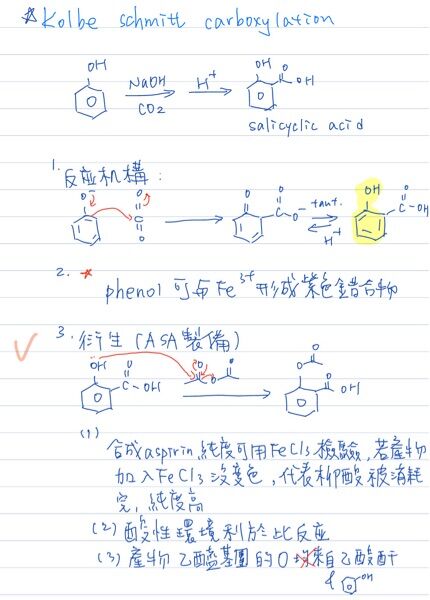 *Kolbe schmitt carboxylation
OH
NaOH
CO2
H+
OH O
C OH
salicyclic acid
1. 反应机構:
O-
O
C
O
O O
C-O-
taut.
H+
OH O
C-OH
2. * phenol 可与Fe3+形成紫色錯合物
3. 衍生 (ASA製備)
OH O
C-OH
O O
O
O
O
C OH
(1)
合成aspirin,純度可用FeCl3檢驗,若產物
加入FeCl3沒变色,代表柳酸被消耗
完,純度高
(2) 酸性環境利於此反应
(3) 產物乙醯基團的O 均來自乙酸酐
& OH